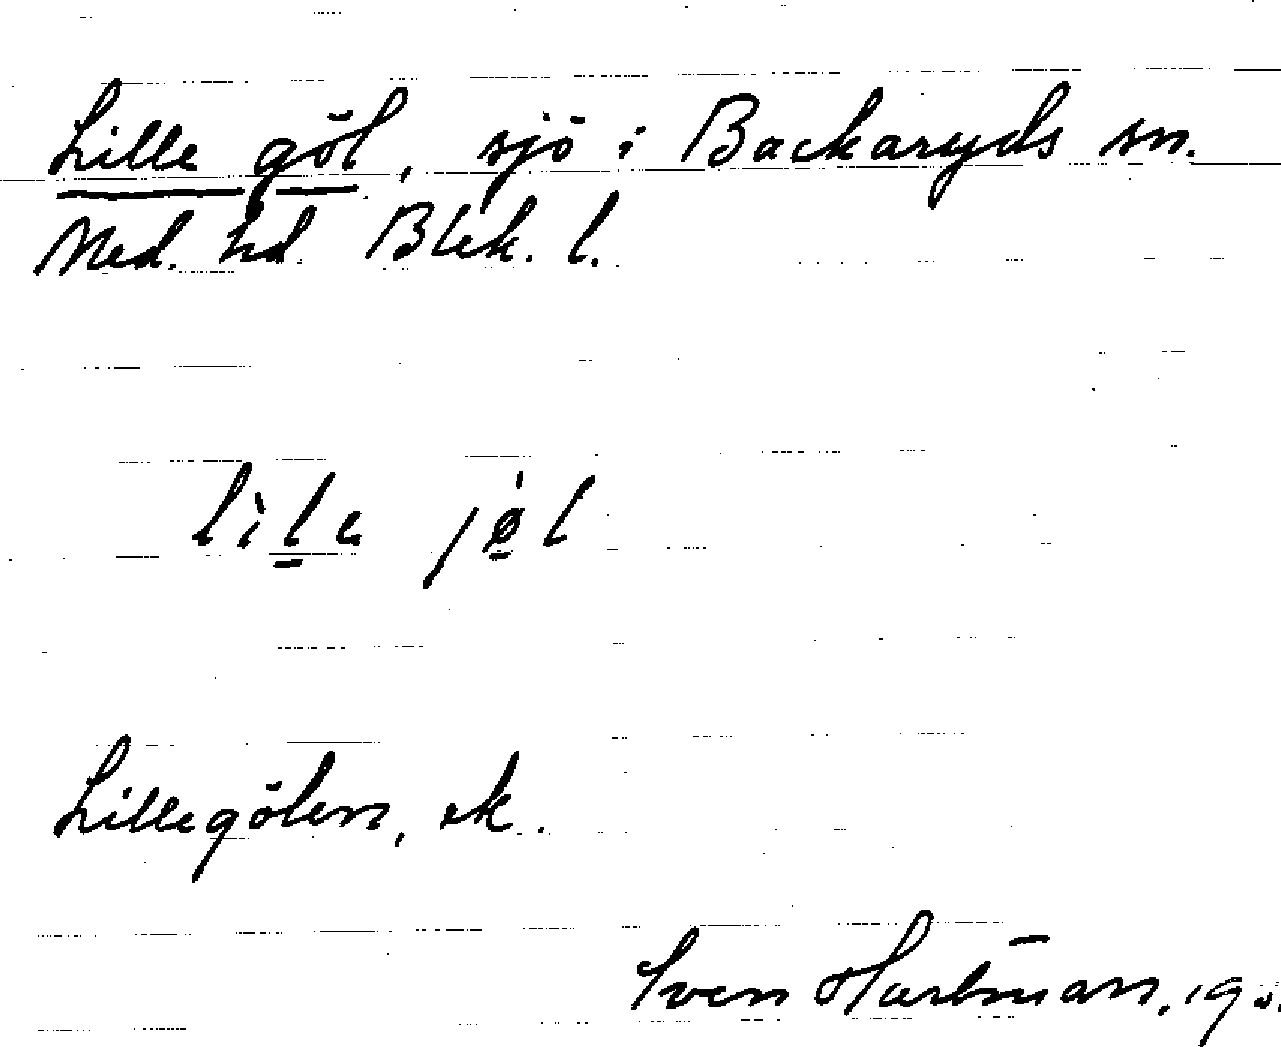 Lille göl, sjö i Backaryds sn.
Med. hd. Blek. l.
lìle jø̀l
Lillegölen, ek.
Sven Hartman, 19